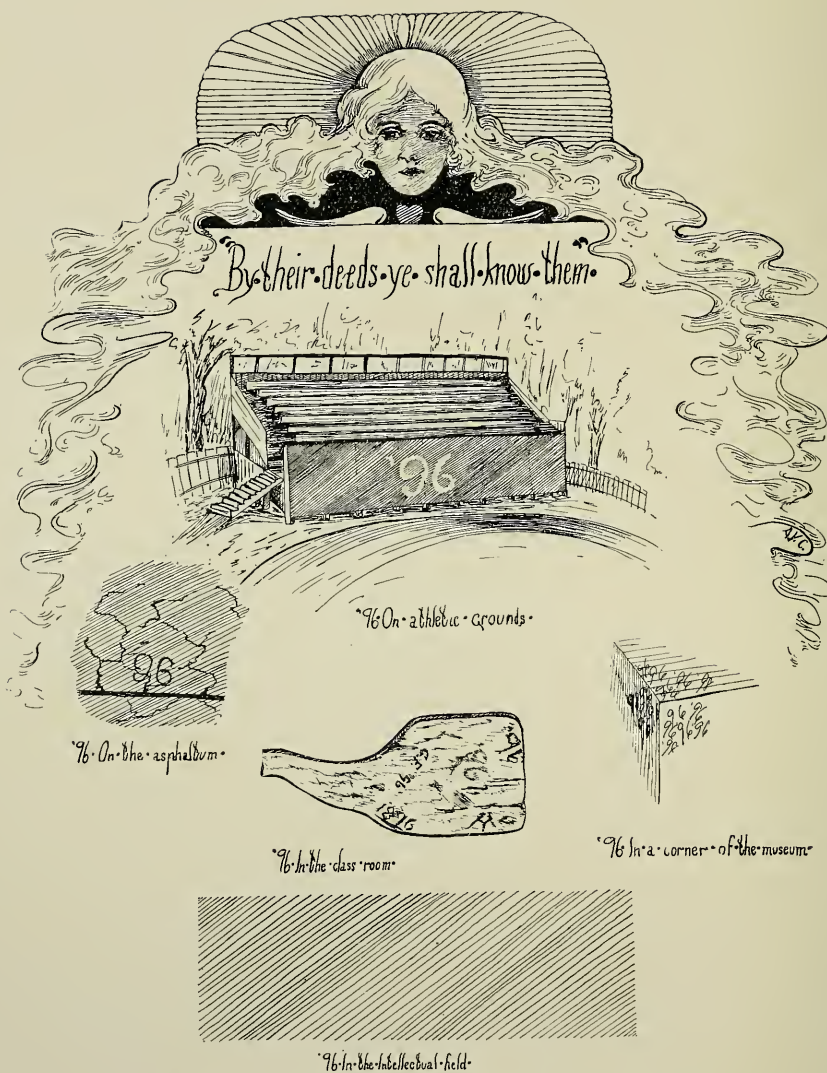 "By·their·deeds·ye·shall·know·them"·
'96
A.V.C.
'96·On·athletic·Grounds·
96
'96·On·the·asphaltum·
96
96
'96·In·the·class·room·
96 96 96
96 96
96 96 96
96
'96·In·a·corner·of·the·museum·
'96·In·the·Intellectual·field·